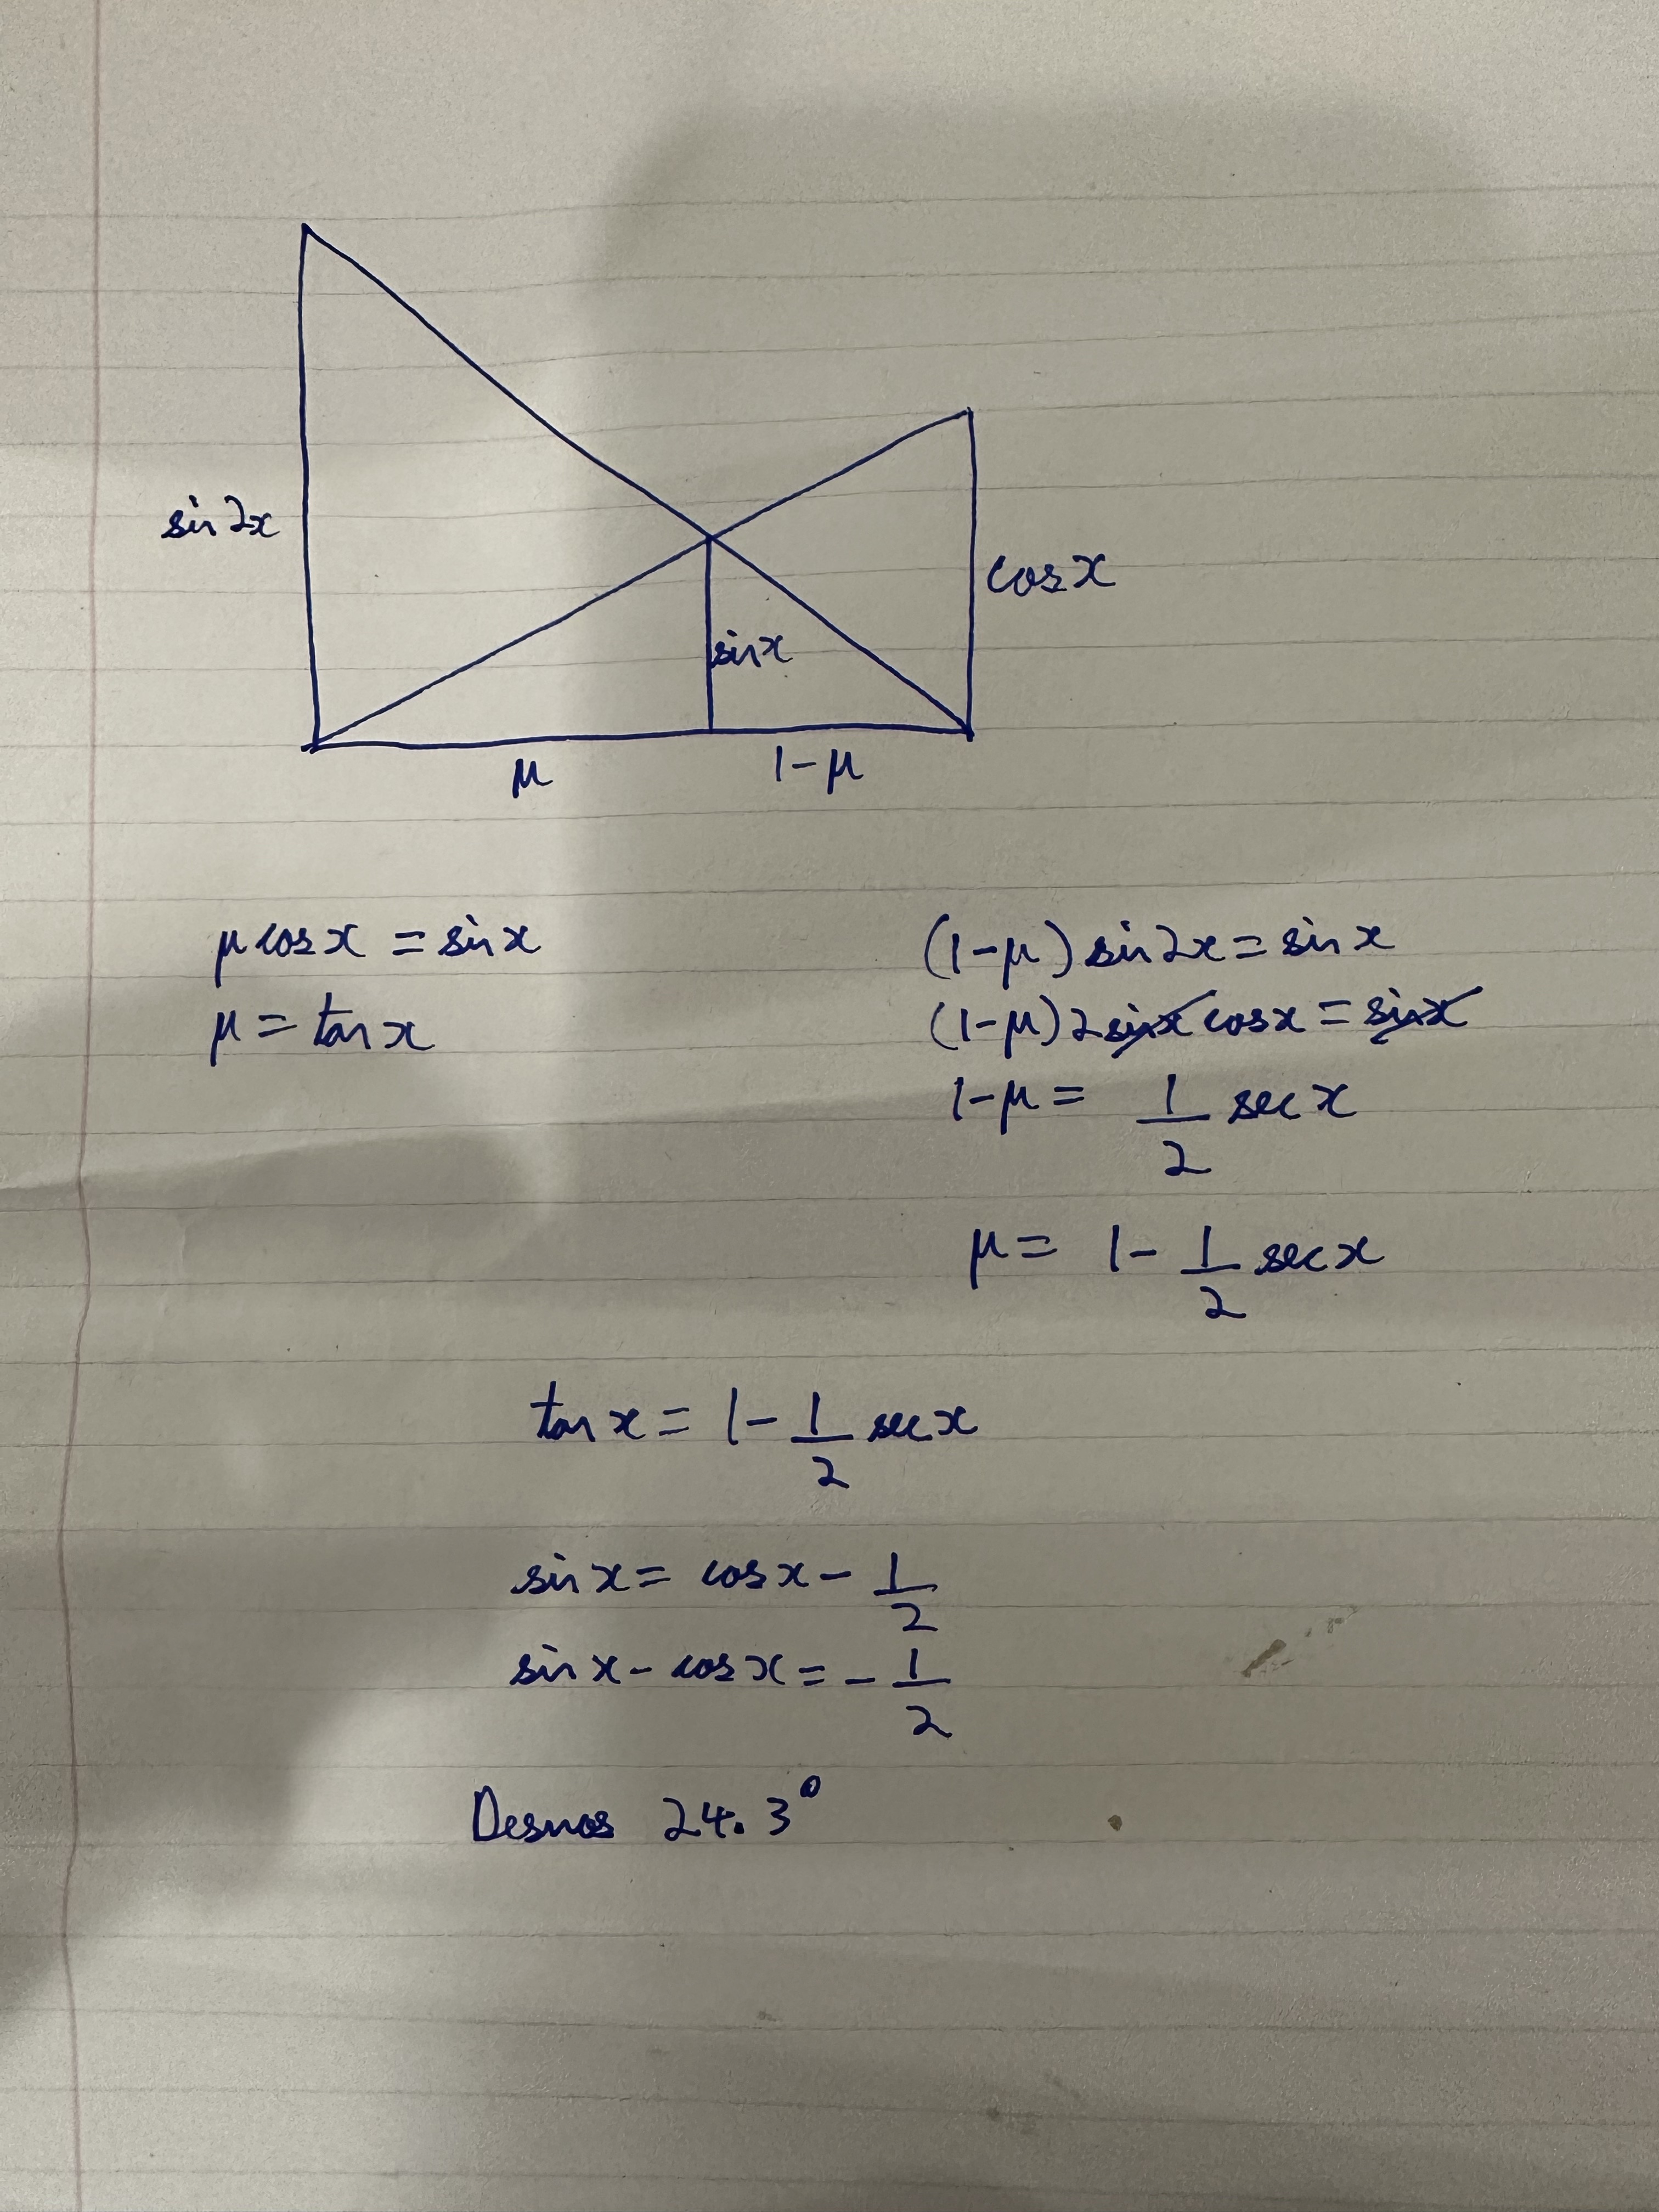 sin 2x
cos x
sin x
μ
1-μ
μ cos x = sin x
μ = tan x
(1-μ) sin 2x = sin x
(1-μ) 2 sin x cos x = sin x
1-μ = 1/2 sec x
μ = 1 - 1/2 sec x
tan x = 1 - 1/2 sec x
sin x = cos x - 1/2
sin x - cos x = - 1/2
Desmos 24.3°